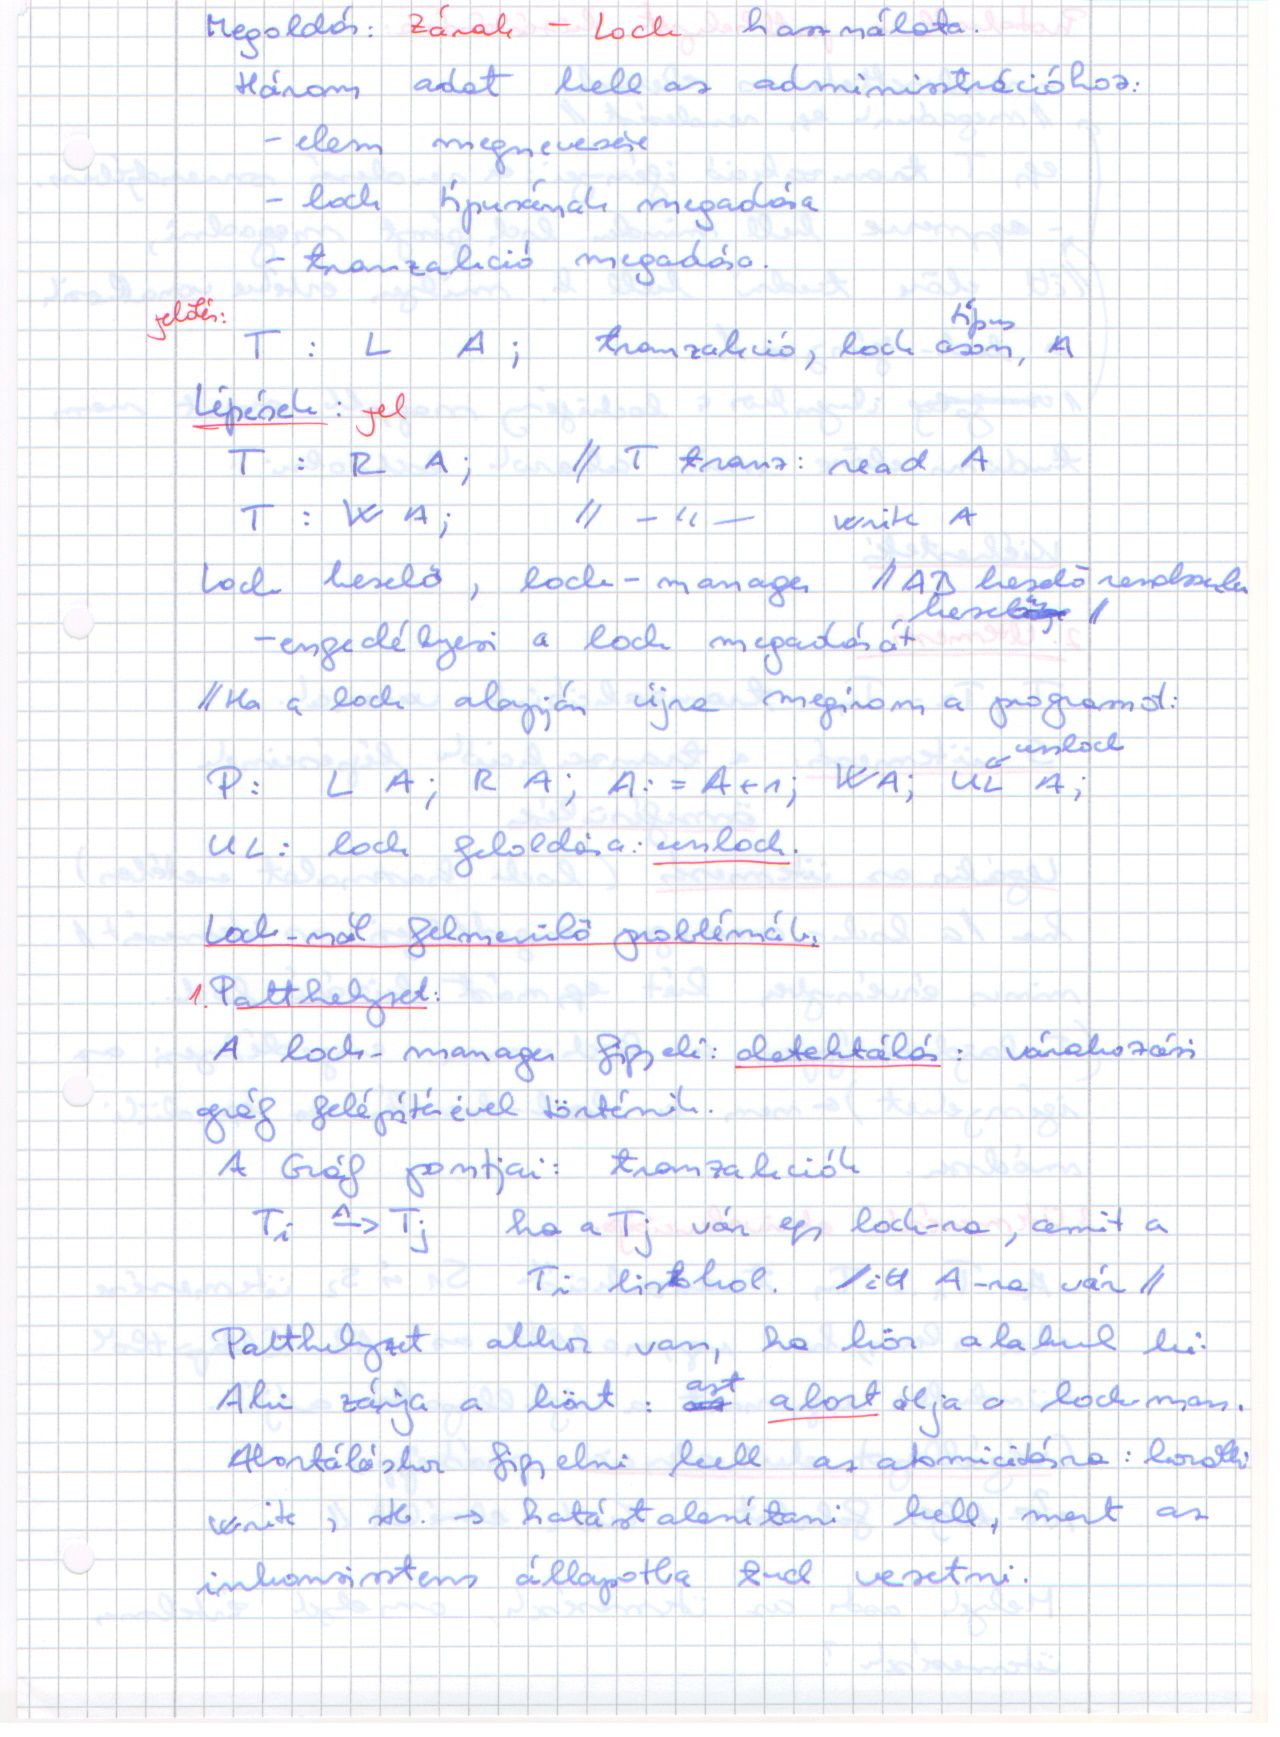 Megoldás: Zárak – Lock használata.
Három adat kell az adminisztrációhoz:
- elem megnevezése
- lock típusának megadása
- tranzakció megadása.
jelölés:
T : L A; tranzakció, lock azon, A
típus
Lépések: jel
T : R A; // T tranz: read A
T : W A; // – " – write A
Lock kezelő, lock-manager // AB kezelő rendszerben
//
– engedélyezi a lock megadását
// Ha a lock alapján újra megírom a programot:
unlock
P: L A; R A; A:=A+1; W A; UL A;
UL: lock feloldása: unlock.
Lock-nál felmerülő problémák.
1. Patthelyzet:
A lock-manager figyeli: detektálás: várakozási
gráf felépítésével történik.
A Gráf pontjai: tranzakciók
Ti A-> Tj ha a Tj vár egy lock-ra, amit a
Ti birtokol. // itt A-ra vár //
Patthelyzet akkor van, ha kör alakul ki.
Aki zárja a kört: azt abortálja a lock man.
Abortáláskor figyelni kell az atomicitásra: korábbi
write, stb. -> hatástalanítani kell, mert az
inkonzisztens állapotba tud vezetni.